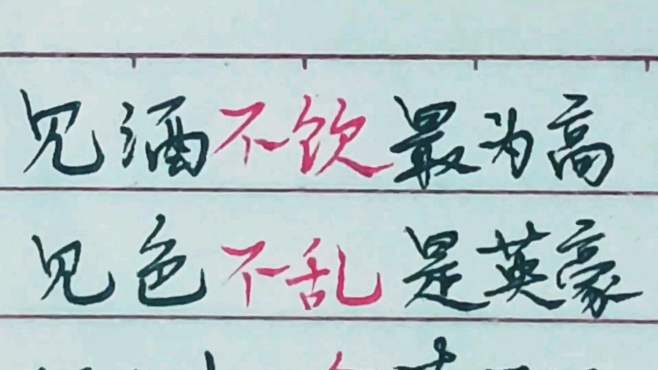 见酒不饮最为高
见色不乱是英豪